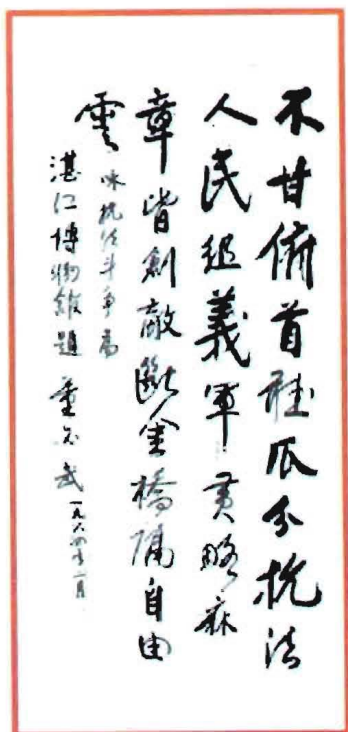 不甘俯首聽瓜分抗法
人民組義軍黄略麻
章皆創敵斷金橋隔自由
雲 咏抗法斗争為
湛江博物館題 董必武 一九六四年一月